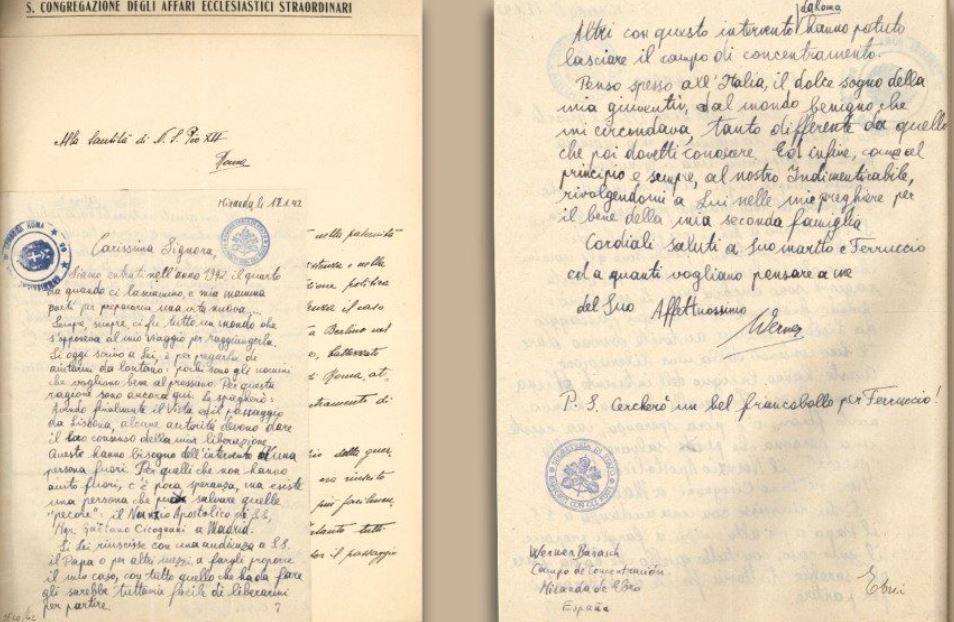 S. CONGREGAZIONE DEGLI AFFARI ECCLESIASTICI STRAORDINARI
Alla Santità di N. S. Pio XII
Roma
Miranda li 17.1.42
Carissima Signora,
Siamo entrati nell'anno 1942 il quarto
da quando ci lasciammo, e mia mamma
partì per prepararmi una vita nuova...
Sempre, sempre, ci fu tutto un mondo che
s'opponeva al mio viaggio per raggiungerla.
Si oggi scrivo a Lei, è per pregarla di
aiutarmi da lontano: pochi sono gli uomini
che vogliono bene al prossimo. Per questa
ragione sono ancora qui. Le spiegherò:
Avendo finalmente il visto ed il passaggio
da Lisbona, alcune autorità devono dare
il loro consenso della mia liberazione.
Queste hanno bisogno dell'intervento di una
persona fuori. Per quelli che non hanno
aiuto fuori, c'è poca speranza, ma esiste
una persona che può salvare quelle
"pecore": il Nunzio Apostolico di S.S,
Mgr. Gaetano Cicognani a Madrid.
Si Lei riuscisse con una audienza a S.S.
il Papa o per altri mezzi, a fargli proporre
il mio caso, con tutto quello che ha da fare
gli sarebbe tuttavia facile di liberarmi
per partire.
nella paternità
e nella
politica
il caso
a Berlino nel
battezzato
di Roma, at-
della guer-
era riuscito
può facilmen-
tutti
il passaggio
da Roma
Altri con questo intervento hanno potuto
lasciare il campo di concentramento.
Penso spesso all'Italia, il dolce sogno della
mia gioventù, dal mondo benigno che
mi circondava, tanto differente da quello
che poi dovetti conoscere. Ed infine, come al
principio e sempre, al nostro Indimenticabile,
rivolgendomi a Lui nelle mie preghiere per
il bene della mia seconda famiglia
Cordiali saluti a Suo marito e Ferruccio
ed a quanti vogliano pensare a me
del Suo Affettuosissimo
Werner
P. S. Cercherò un bel francobollo per Ferruccio!
Werner Barasch
Campo de Concentración
Miranda de Ebro
España
Ebrei